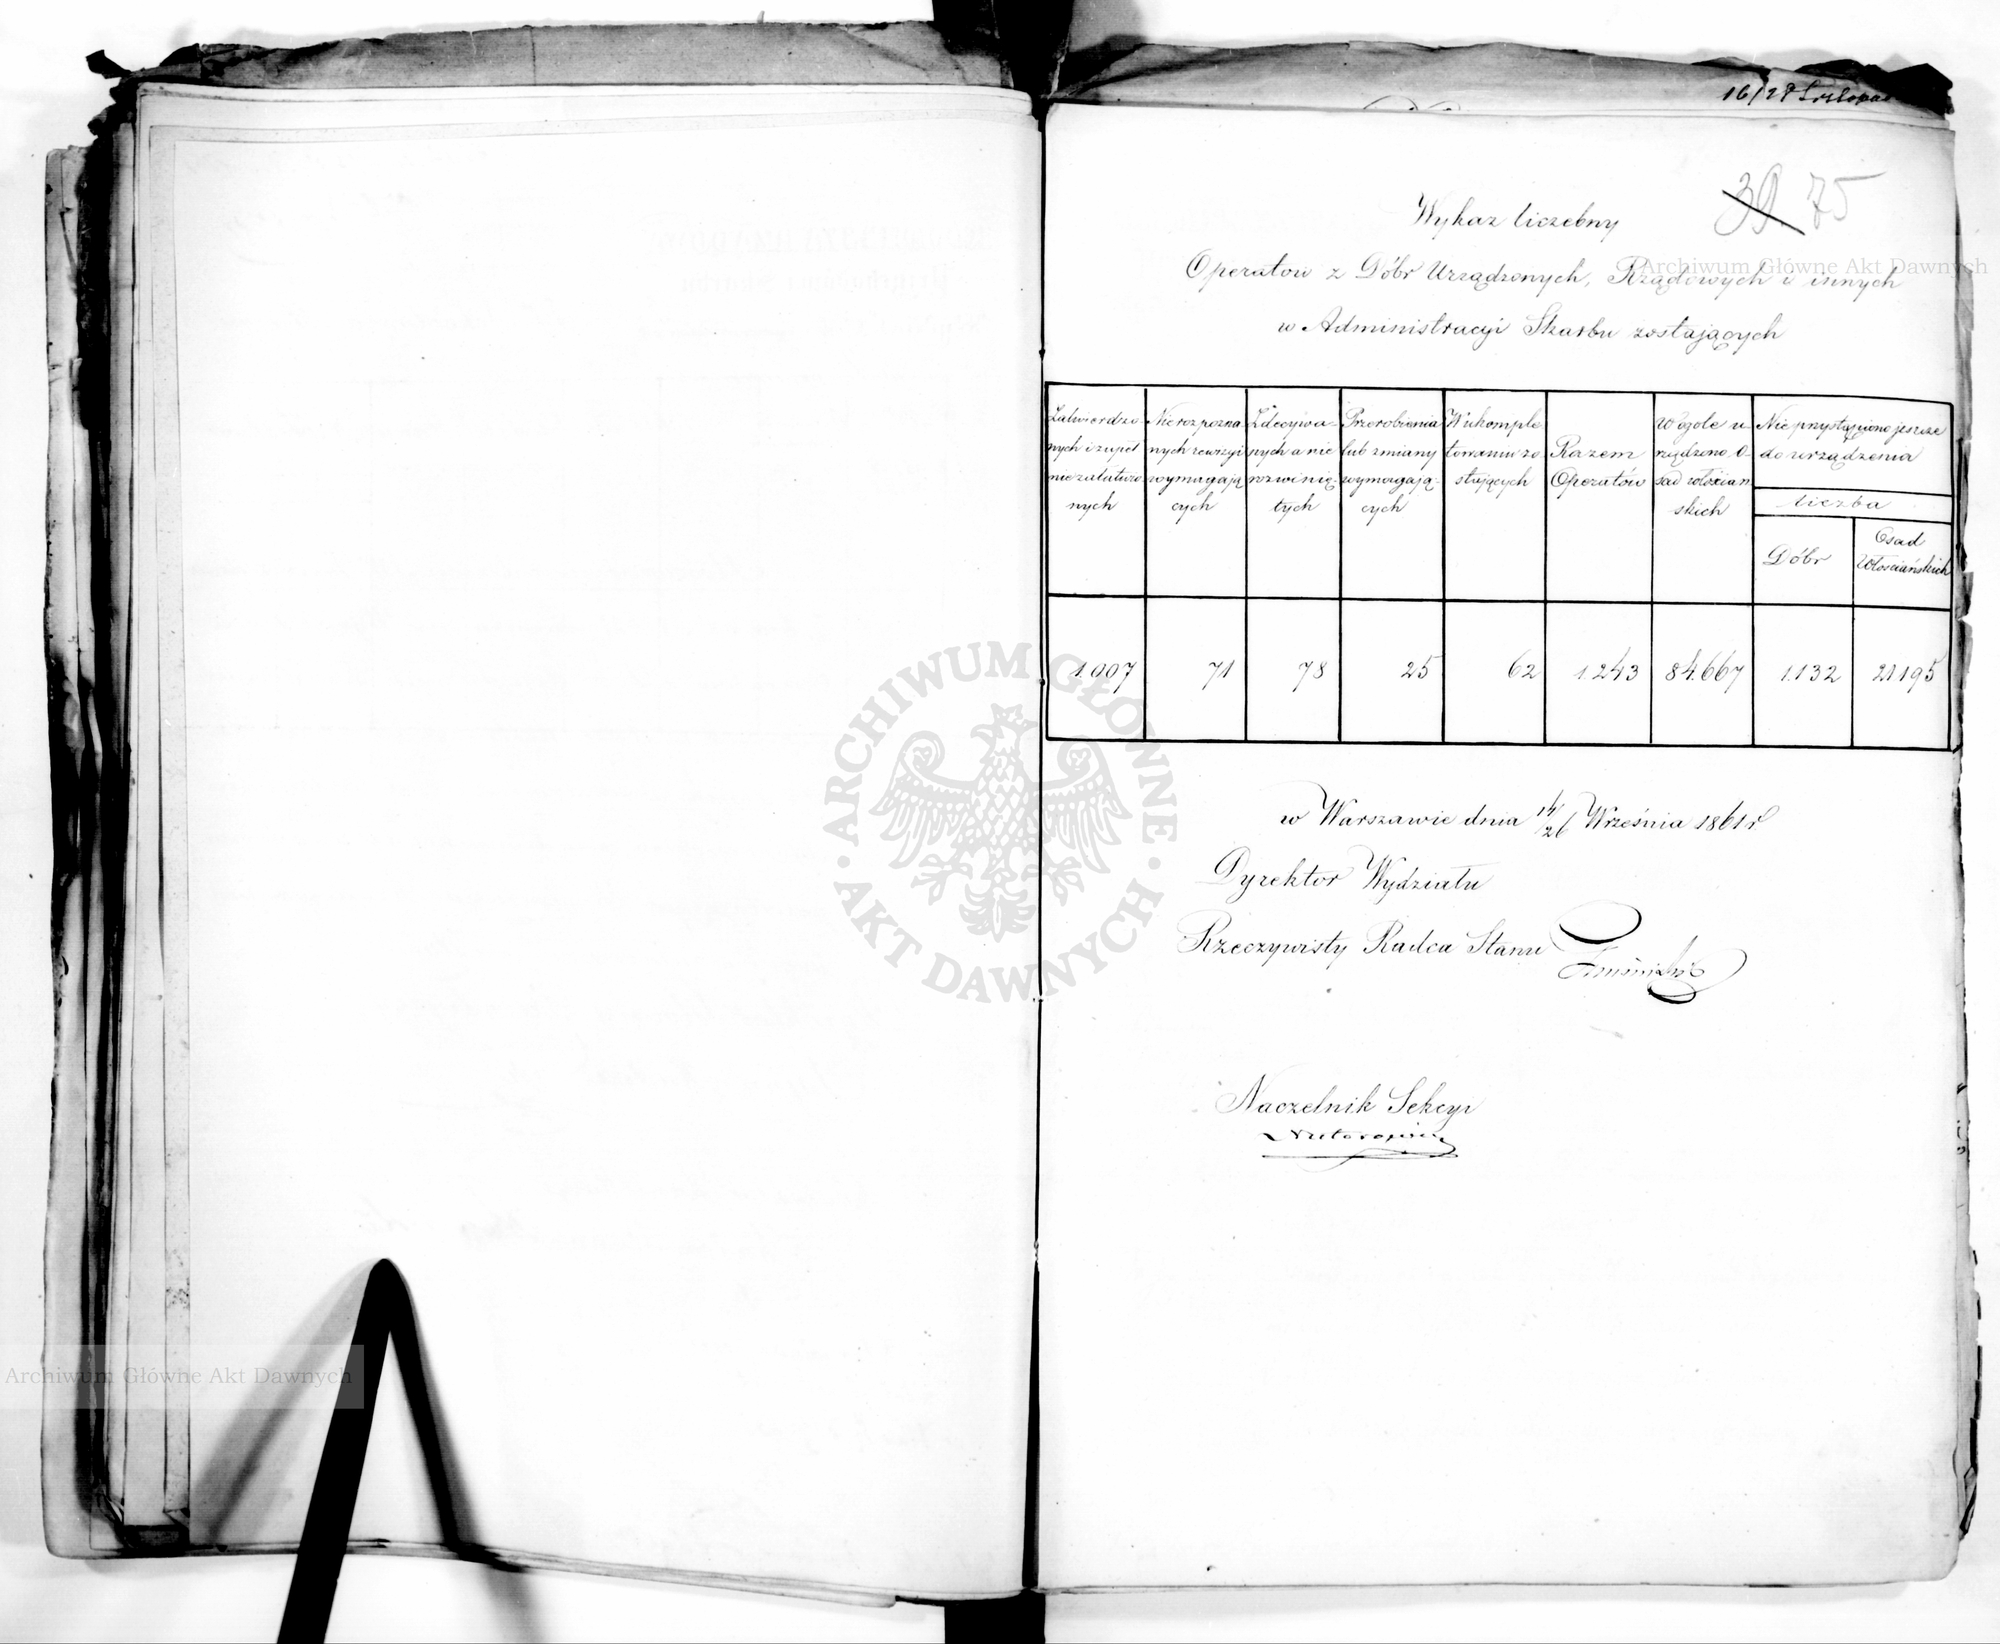 16/28 Listopa
39. 75
Wykaz liczebny
Operatów z Dóbr Urządzonych, Rządowych i innych
w Administracyi Skarbu zostających
Zatwierdzo
nych i zupeł
nie załatwio
nych
Nierozpozna
nych rewizyi
wymagają
cych
Zdecydowa-
nych a nie
rozwinię-
tych
Przerobienia
lub zmiany
wymagają-
cych
W ukomple
towaniu zo
stających
Razem
Operatów
W ogóle u
rządzono O
sad włościan
skich
Nie przystąpiono jeszcze
do urządzenia
liczba
Dóbr
Osad
Włościańskich
1.007 71 78 25 62 1.243 84.667 1.132 21.195
w Warszawie dnia 14/26 Września 1861 r
Dyrektor Wydziału
Rzeczywisty Radca Stanu
Naczelnik Sekcyi
Archiwum Główne Akt Dawnych
ARCHIWUM GŁÓWNE
AKT DAWNYCH
Archiwum Główne Akt Dawnych